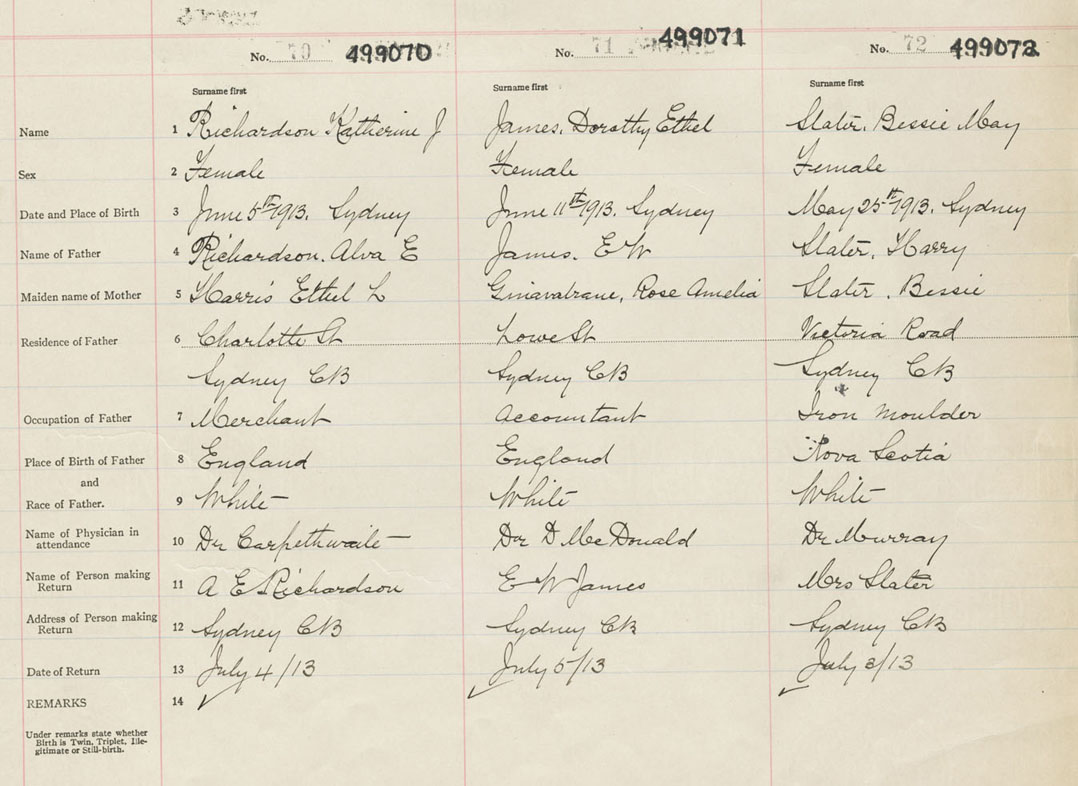 No. 70 499070 No. 71 499071 No. 72 499072
Surname first Surname first Surname first
Name 1 Richardson Katherine J James, Dorothy Ethel Slater, Bessie May
Sex 2 Female Female Female
Date and Place of Birth 3 June 5th 1913. Sydney June 11th 1913. Sydney May 25th 1913. Sydney
Name of Father 4 Richardson, Alva E James. E W Slater, Harry
Maiden name of Mother 5 Harris Ethel L Rose Amelia Slater, Bessie
Residence of Father 6 Charlotte St Lowe St Victoria Road
Sydney CB Sydney CB Sydney CB
Occupation of Father 7 Merchant Accountant Iron Moulder
Place of Birth of Father 8 England England Nova Scotia
and
Race of Father. 9 White White White
Name of Physician in
attendance 10 Dr Carpethwaite Dr D McDonald Dr Murray
Name of Person making
Return 11 A E Richardson E W James Mrs Slater
Address of Person making
Return 12 Sydney CB Sydney CB Sydney CB
Date of Return 13 July 4/13 July 5/13 July 3/13
REMARKS 14
Under remarks state whether
Birth is Twin, Triplet, Ille-
gitimate or Still-birth.